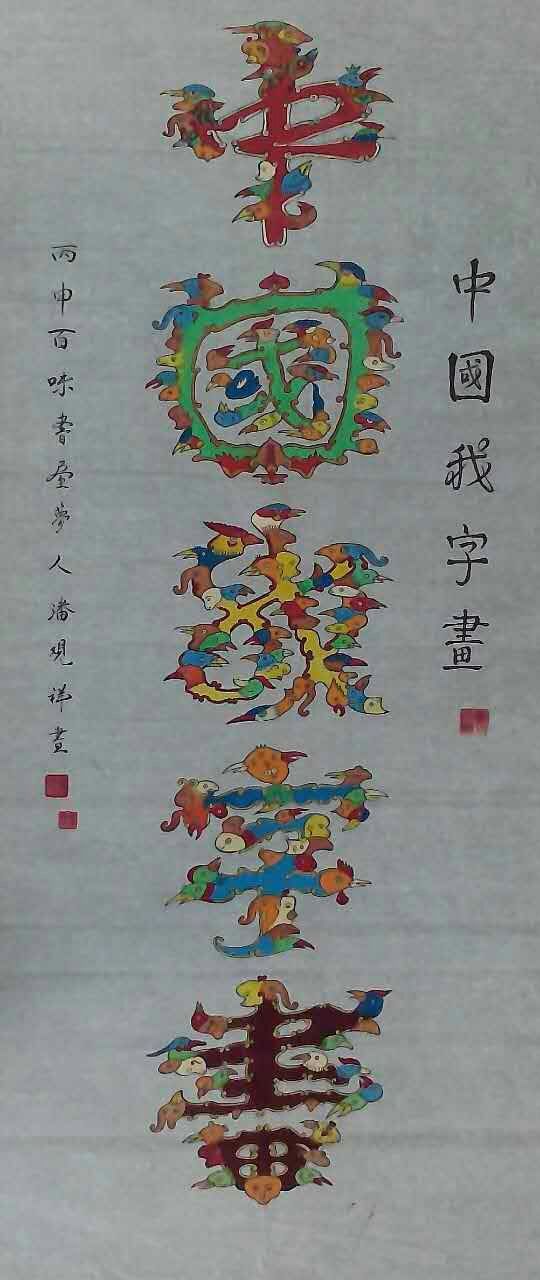 中國我字畫
中國我字畫
丙申百味書屋夢人潘观祥畫